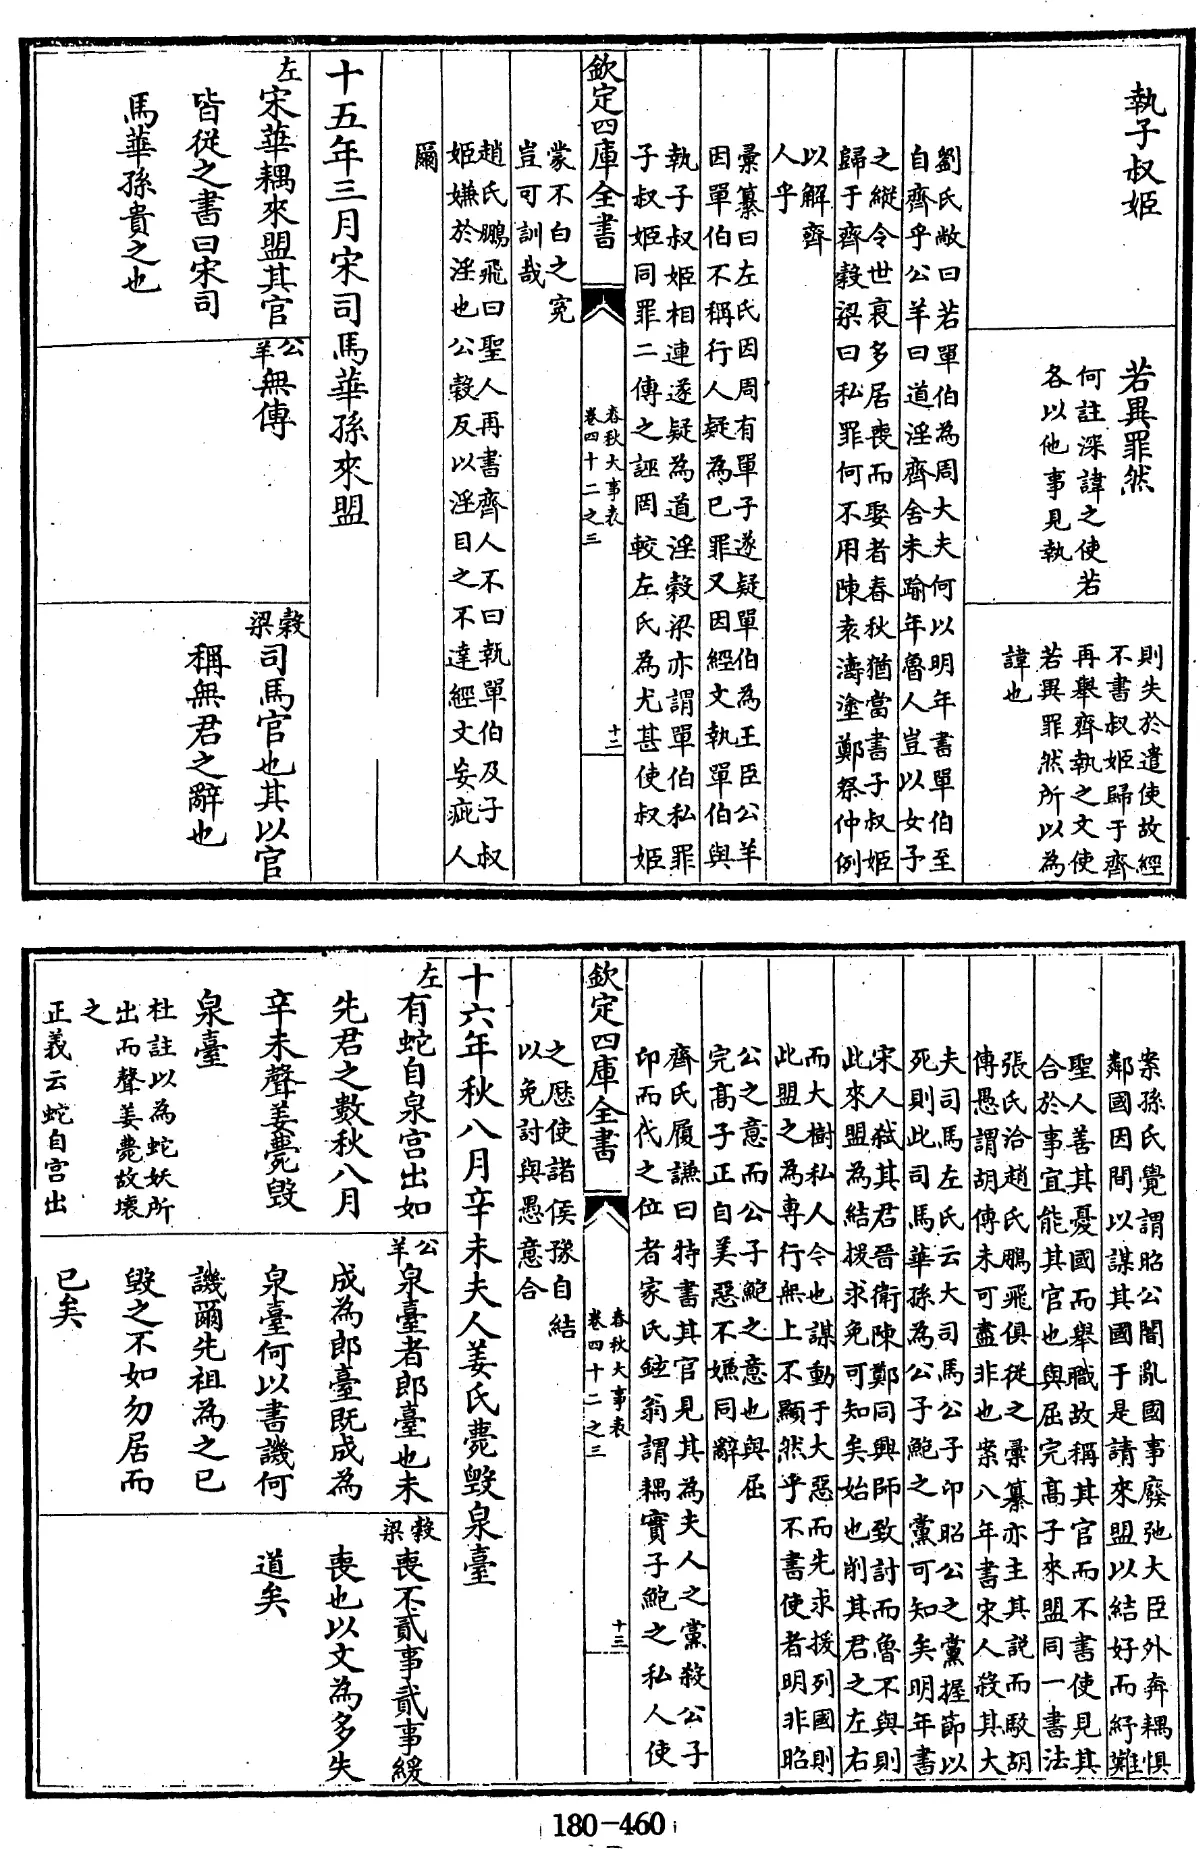 執子叔姬
若異罪然
何註深諱之使若
各以他事見執
則失於遣使故經
不書叔姬歸于齊
再舉齊執之文使
若異罪然所以為
諱也
劉氏敞曰若單伯為周大夫何以明年書單伯至
自齊乎公羊曰道淫齊舍未踰年魯人豈以女子
之縱令世哀多居喪而娶者春秋猶當書子叔姬
歸于齊穀梁曰私罪何不用陳袁濤塗鄭祭仲例
以解齊
人乎
彙纂曰左氏因周有單子遂疑單伯為王臣公羊
因單伯不稱行人疑為已罪又因經文執單伯與
執子叔姬相連遂疑為道淫穀梁亦謂單伯私罪
子叔姬同罪二傳之誣罔較左氏為尤甚使叔姬
欽定四庫全書
春秋大事表
卷四十二之三
十二
蒙不白之寃
豈可訓哉
趙氏鵬飛曰聖人再書齊人不曰執單伯及子叔
姬嫌於淫也公穀反以淫目之不達經文妄疵人
爾
十五年三月宋司馬華孫來盟
左宋華耦來盟其官
皆從之書曰宋司
馬華孫貴之也
公羊無傳
穀梁司馬官也其以官
稱無君之辭也
案孫氏覺謂昭公闇亂國事廢弛大臣外奔耦懼
鄰國因間以謀其國于是請來盟以結好而紓難
聖人善其憂國而舉職故稱其官而不書使見其
合於事宜能其官也與屈完高子來盟同一書法
張氏洽趙氏鵬飛俱從之彙纂亦主其説而駮胡
傳愚謂胡傳未可盡非也案八年書宋人殺其大
夫司馬左氏云大司馬公子卬昭公之黨握節以
死則此司馬華孫為公子鮑之黨可知矣明年書
宋人弑其君晉衛陳鄭同興師致討而魯不與則
此來盟為結援求免可知矣始也削其君之左右
而大樹私人今也謀動于大惡而先求援列國則
此盟之為專行無上不顯然乎不書使者明非昭
公之意而公子鮑之意也與屈
完高子正自美惡不嫌同辭
齊氏履謙曰特書其官見其為夫人之黨殺公子
卬而代之位者家氏鉉翁謂耦實子鮑之私人使
欽定四庫全書
春秋大事表
卷四十二之三
十三
之歴使諸侯豫自結
以免討與愚意合
十六年秋八月辛未夫人姜氏薨毀泉臺
左有蛇自泉宮出如
先君之數秋八月
辛未聲姜薨毀
泉臺
杜註以為蛇妖所
出而聲姜薨故壞
之
正義云蛇自宮出
公羊泉臺者郎臺也未
成為郎臺既成為
泉臺何以書譏何
譏爾先祖為之已
毀之不如勿居而
已矣
穀梁喪不貳事貳事緩
喪也以文為多失
道矣
180-460